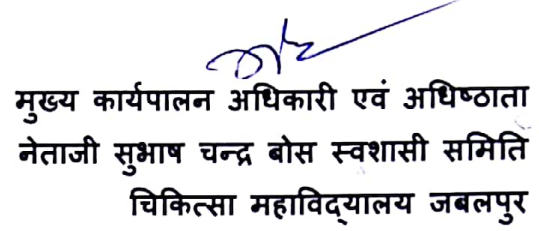 मुख्य कार्यपालन अधिकारी एवं अधिष्ठाता
नेताजी सुभाष चन्द्र बोस स्वशासी समिति
चिकित्सा महाविद्यालय जबलपुर